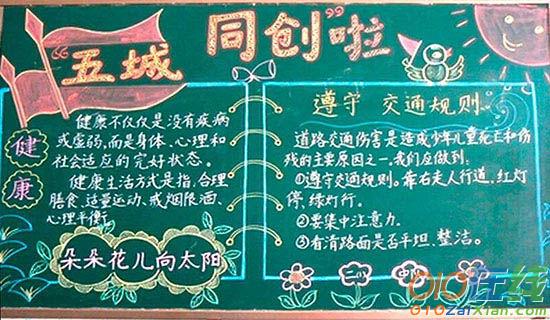 “五城同创”啦
健康
健康不仅仅是没有疾病
或虚弱,而是身体、心理和
社会适应的完好状态。
健康生活方式是指,合理
膳食、适量运动、戒烟限酒、
心理平衡。
朵朵花儿向太阳
遵守 交通规则。
道路交通伤害是造成少年儿童死亡和伤
残的主要原因之一。我们应做到:
①遵守交通规则。靠右走人行道,红灯
停,绿灯行。
②要集中注意力。
③看清路面是否平坦、整洁。
二(一)中队
010在线
010zaixian.com